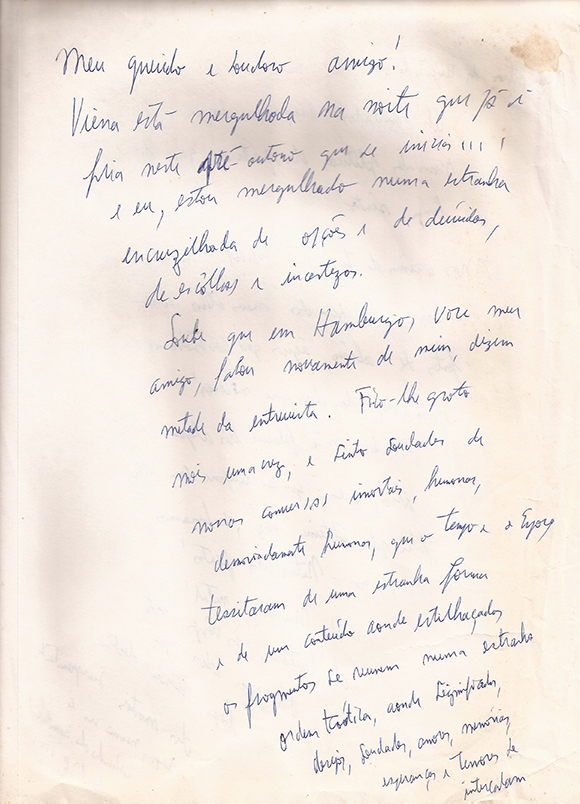 Meu querido e saudoso amigo!
Viena está mergulhada na noite que já é
fria neste pré outono que se inicia!!!
e eu, estou mergulhado numa estranha
encruzilhada de opções e de dúvidas,
de escolhas e incertezas.
Soube que em Hamburgo, você meu
amigo, falou novamente de mim, dizem
metade da entrevista. Fico-lhe grato
mais uma vez, e sinto saudades de
nossas conversas imortais, humanas,
demasiadamente humanas, que o tempo e o
tessitaram de uma estranha forma
e de um conteúdo aonde estilhaçados
os fragmentos se reunem numa estranha
ordem caótica, aonde significados,
desejos, saudades, amores, memórias,
esperanças e temores se
intercalam